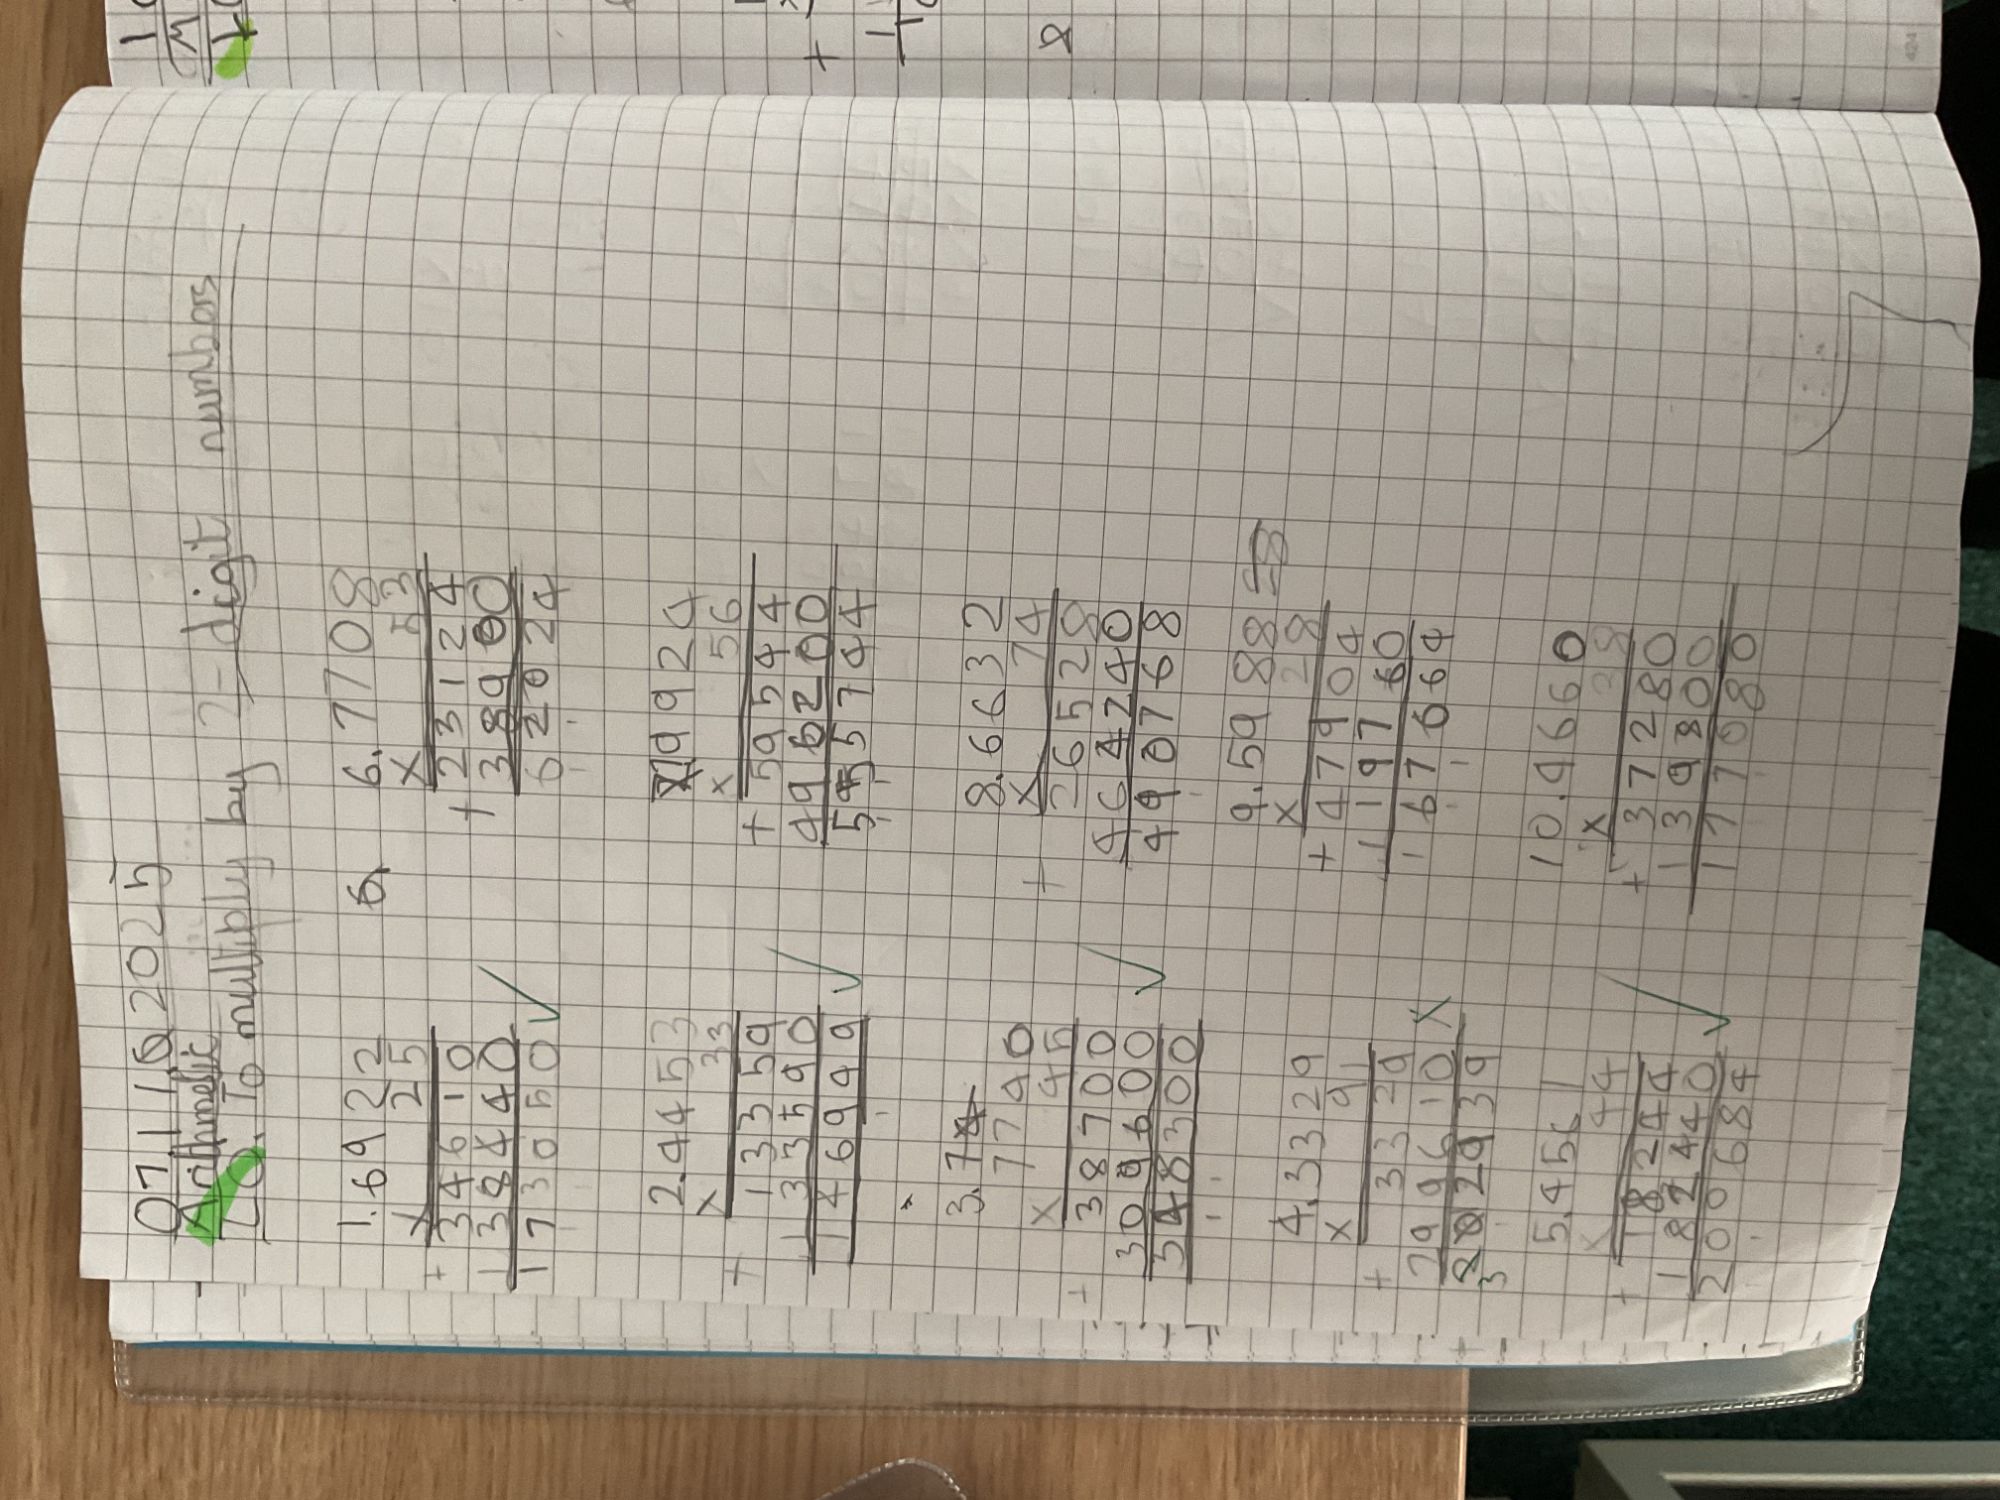 07.11.2025
Arithmetic
LO: To multiply by 2-digit numbers
1. 6922
x 25
+ 34610
138440
173050
2. 4453
x 33
+ 13359
133590
146949
3. 7
7740
x 45
+ 38700
309600
348300
4. 3329
x 91
+ 3329
299610
802939
3
5. 4561
x 44
+ 18244
182440
200684
6.
6. 7708
x 53
+ 23124
38900
62024
7. 9924
x 56
+ 59544
496200
555744
8. 6632
x 74
+ 26528
464240
490768
9. 5988
x 28
+ 47904
119760
167664
10. 4660
x 38
+ 37280
139800
177080